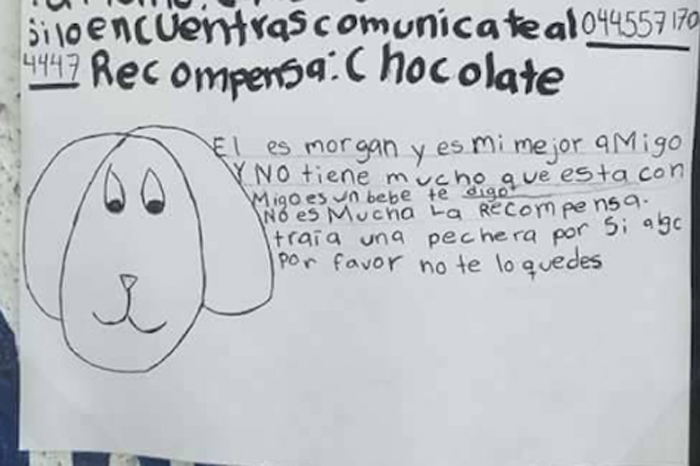 Si lo encuentras comunicate al 044557170
4447 Recompensa: Chocolate
El es morgan y es mi mejor aMigo
Y NO tiene mucho que esta con
Migo es un bebe te digo
NO es Mucha La Recompensa.
traía una pechera por Si algo
Por favor no te lo quedes